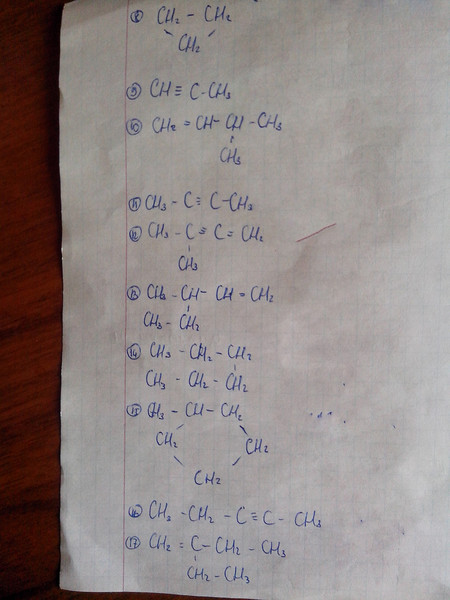 ⑧ CH₂ - CH₂
CH₂
⑨ CH ≡ C - CH₃
⑩ CH₂ = CH - CH - CH₃
CH₃
⑪ CH₃ - C ≡ C - CH₃
⑫ CH₃ - C = C = CH₂
CH₃
⑬ CH₃ - CH - CH = CH₂
CH₃ - CH₂
⑭ CH₃ - CH₂ - CH₂
CH₃ - CH₂ - CH₂
⑮ CH₃ - CH - CH₂
CH₂ CH₂
CH₂
⑯ CH₃ - CH₂ - C ≡ C - CH₃
⑰ CH₂ = C - CH₂ - CH₃
CH₂ - CH₃